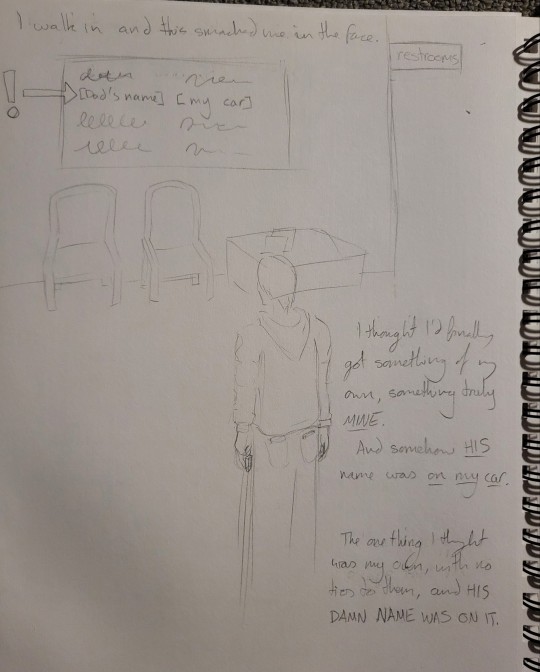 I walk in and this smacked me in the face.
restrooms
!
[Dad's name] [my car]
I thought I'd finally
got something of my
own, something truly
MINE.
And somehow HIS
name was on my car.
The one thing I thought
was my own, with no
ties to them, and HIS
DAMN NAME WAS ON IT.